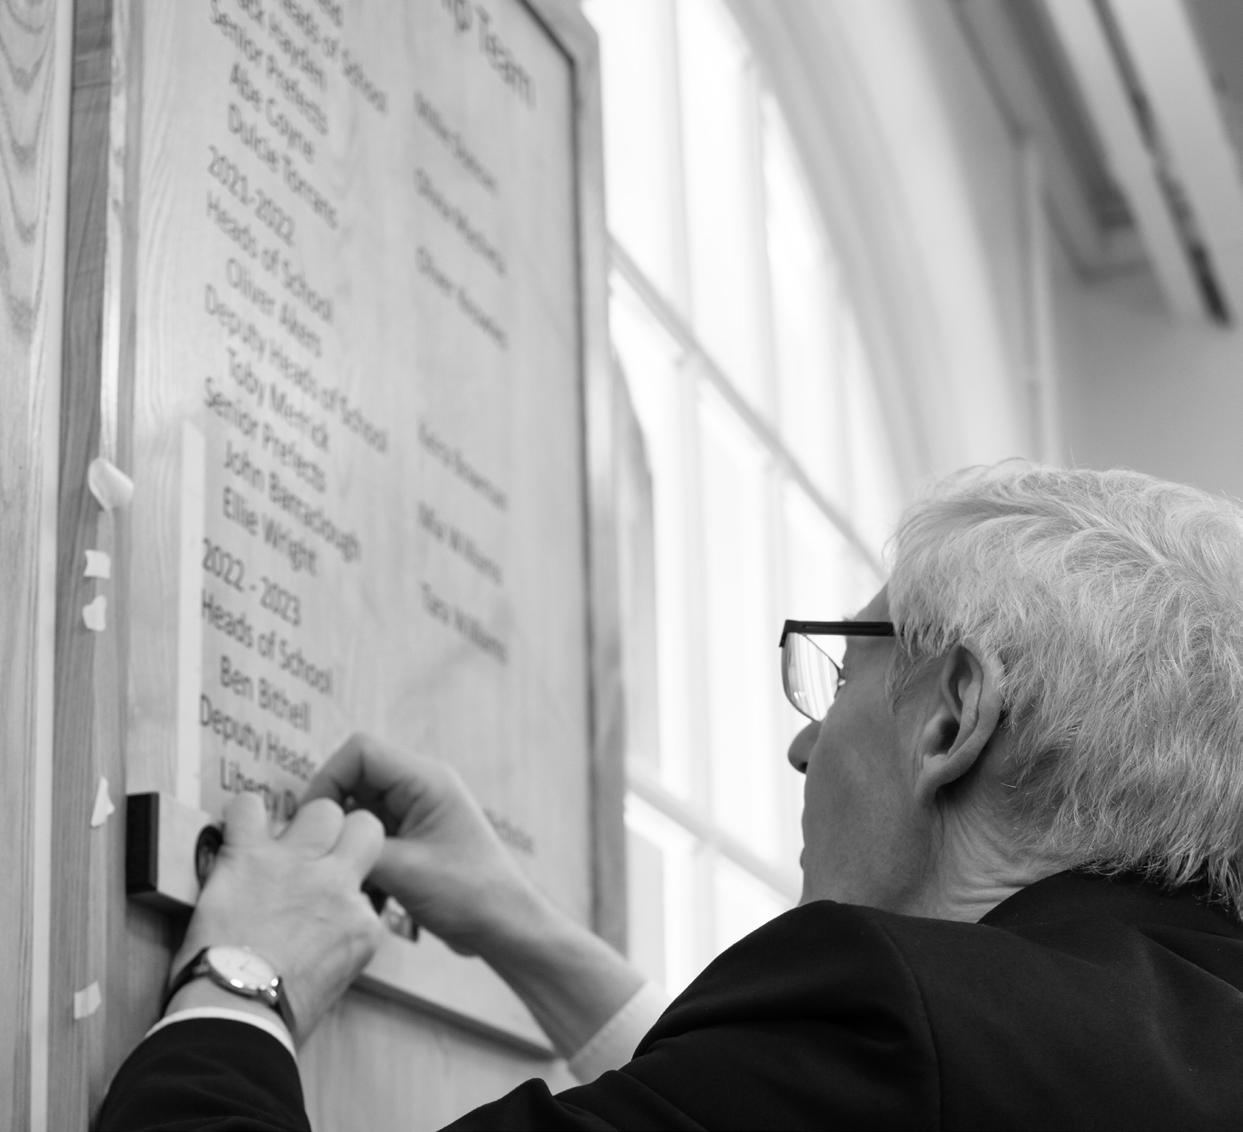 Team
Heads of School
Hayden
Senior Prefects
Abe Coyne
Dulcie Torrans
2021-2022
Heads of School
Oliver Akers
Deputy Heads of School
Toby Merrick
Senior Prefects
John Barraclough
Ellie Wright
2022 - 2023
Heads of School
Ben Bithell
Deputy Heads
Liberty
Mia Williams
Tara Williams